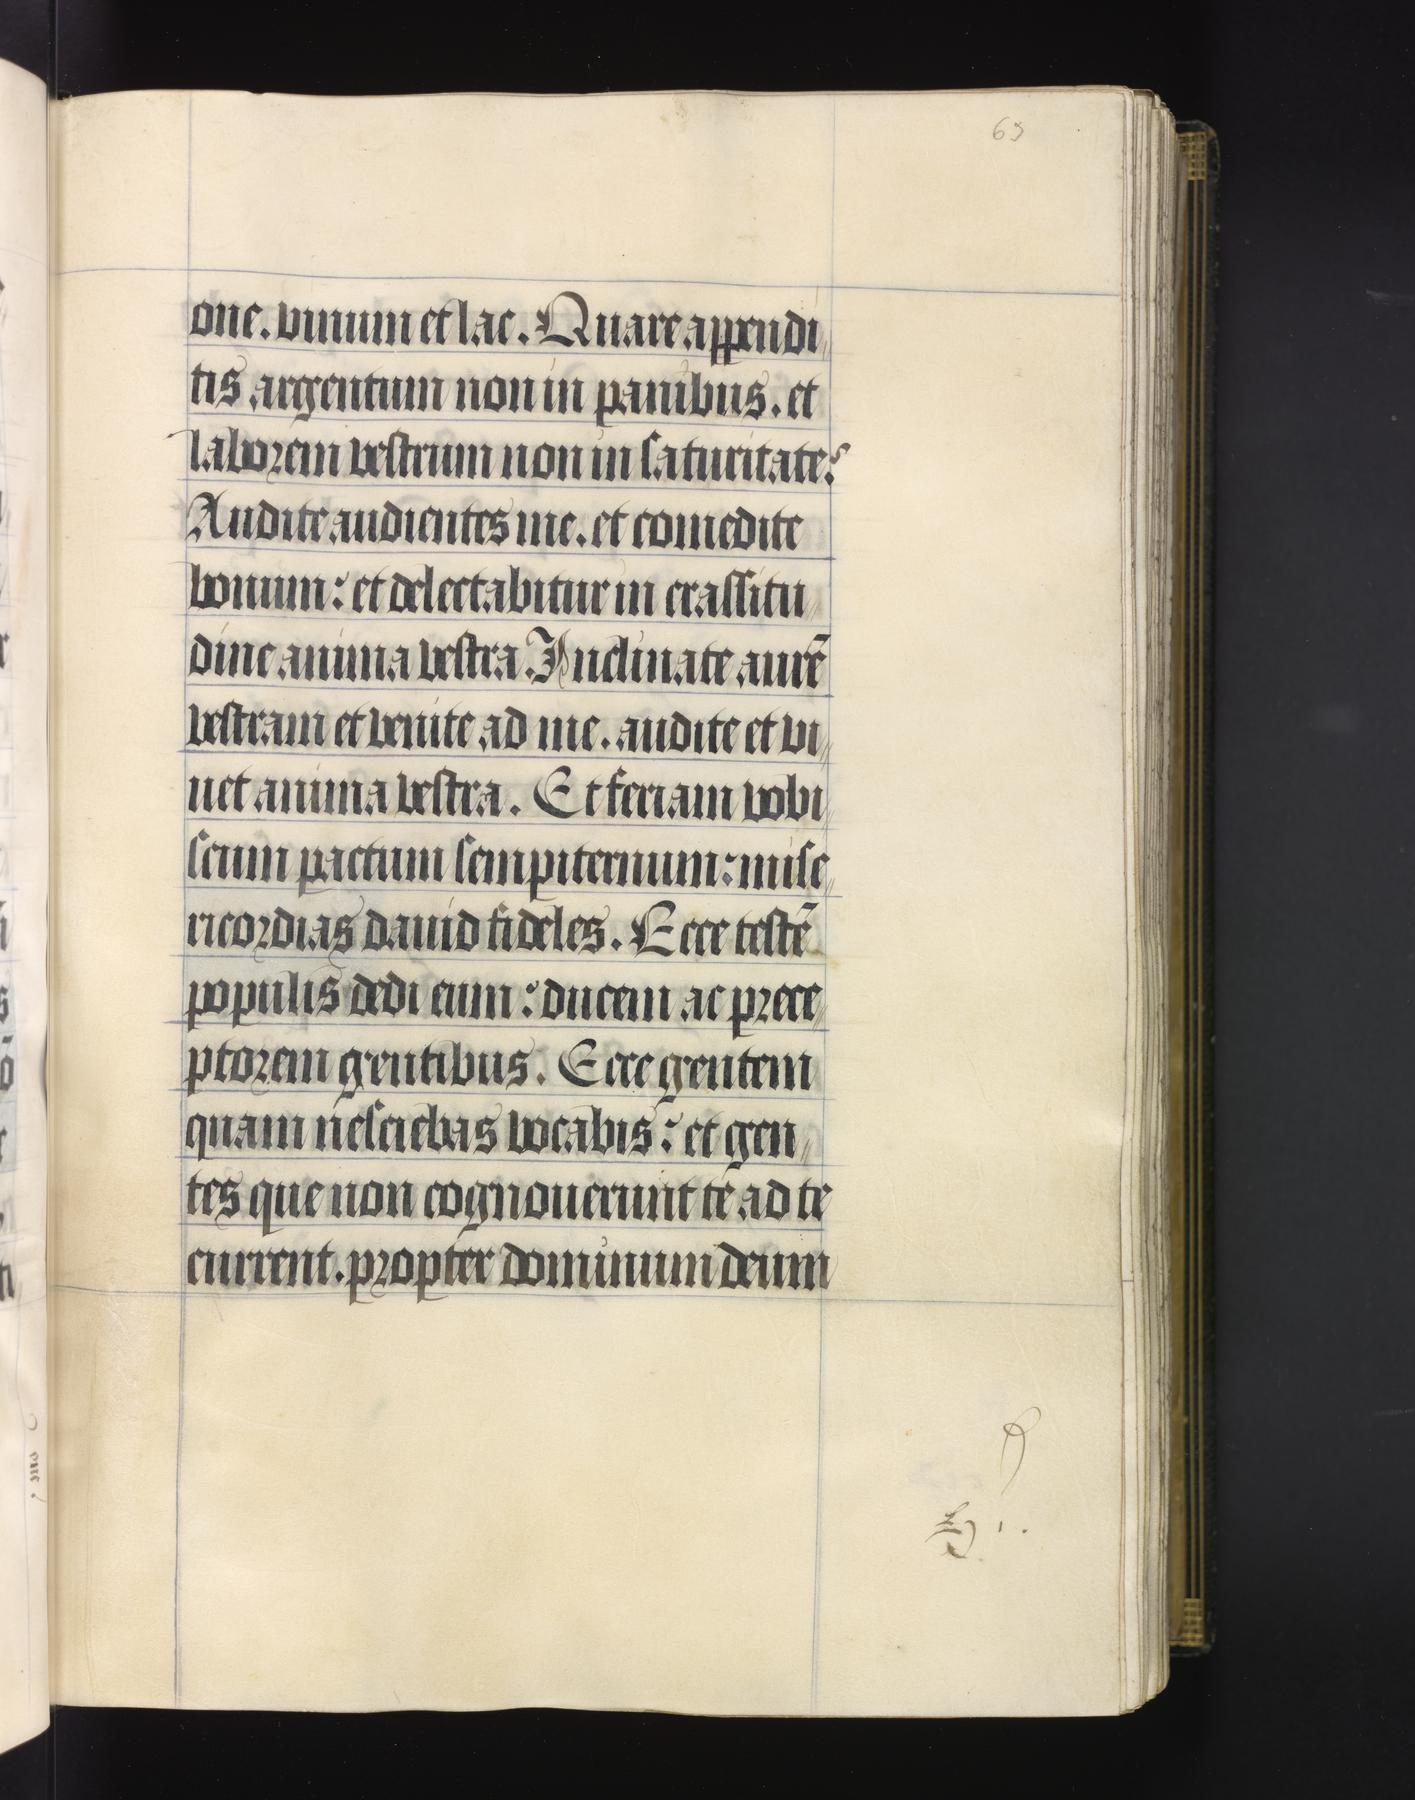 63
one. vinum et lac. Quare appendi
tis argentum non in panibus. et
laborem vestrum non in saturitate?
Audite audientes me. et comedite
bonum: et delectabitur in crassitu
dine anima vestra. Inclinate aurē
vestram et venite ad me. audite et vi
uet anima vestra. Et feriam vobi
scum pactum sempiternum: mise
ricordias dauid fideles. Ecce testē
populis dedi eum: ducem ac prece
ptorem gentibus. Ecce gentem
quam nesciebas vocabis: et gen
tes que non cognouerunt te ad te
current. propter dominum deum